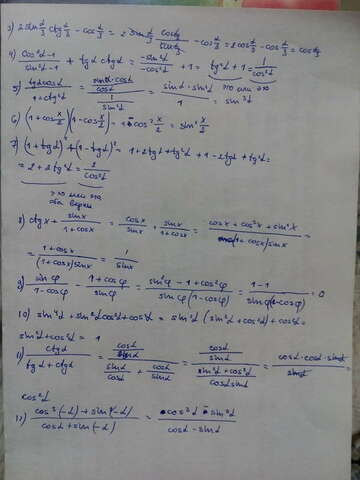 3) 2 sin α/3 ctg α/3 - cos α/3 = 2 sin α/3 · cos α/3 / sin α/3 - cos α/3 = 2 cos α/3 - cos α/3 = cos α/3
4) (cos²α-1)/(sin²α-1) + tgα ctgα = -sin²α/-cos²α + 1 = tg²α + 1 = 1/cos²α
5) tgα cosα / 1 + ctg²α = (sinα · cosα / cosα) / (1/sin²α) = sinα · sin²α / 1 = sin³α
6) (1 + cos x/2)(1 - cos x/2) = 1 - cos² x/2 = sin² x/2
7) (1 + tgα)² + (1 - tgα)² = 1 + 2tgα + tg²α + 1 - 2tgα + tg²α =
= 2 + 2tg²α = 2/cos²α
8) ctg x + sin x/(1 + cos x) = cos x/sin x + sin x/(1 + cos x) = (cos x + cos²x + sin²x)/((1 + cos x) sin x) =
= (1 + cos x)/((1 + cos x) sin x) = 1/sin x
9) sin φ/(1 - cos φ) - (1 + cos φ)/sin φ = (sin²φ - 1 + cos²φ)/(sin φ (1 - cos φ)) = (1 - 1)/(sin φ(1 - cos φ)) = 0
10) sin⁴α + sin²α cos²α + cos²α = sin²α (sin²α + cos²α) + cos²α =
sin²α + cos²α = 1
11) ctgα/(tgα + ctgα) = (cosα/sinα)/(sinα/cosα + cosα/sinα) = (cosα/sinα)/((sin²α + cos²α)/(cosα sinα)) = cosα · cosα · sinα / sinα =
cos²α
12) (cos²(-α) + sin²(-α))/(cosα + sin(-α)) = (cos²α - sin²α)/(cosα - sinα)